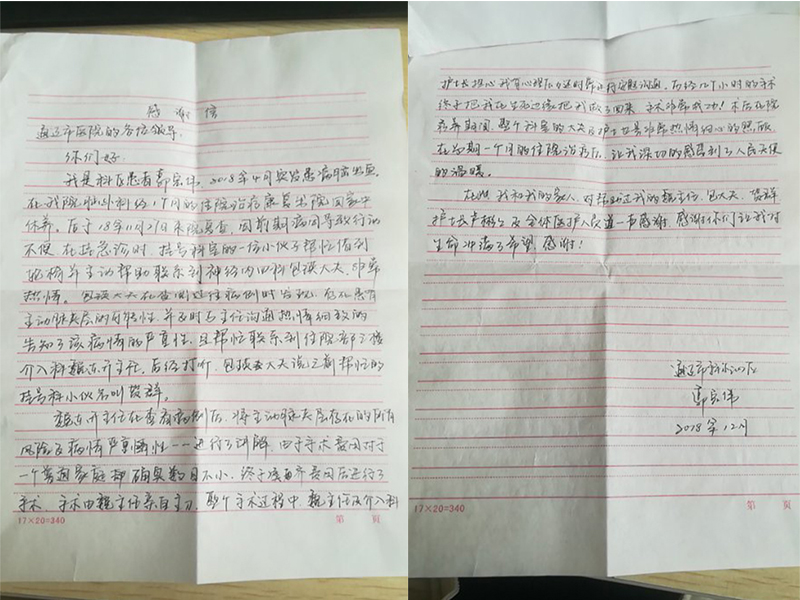 感谢信
通辽市医院的各位领导:
你们好
我是科区患者郭宏伟,2018年4月突发患病
在我院 外科经1个月的住院治疗康复出院回家
休养。后于18年11月27日来院复查,因前期病因导致行动
不便,在挂急诊时,挂号科室的一位小伙子帮忙借到
轮椅并主动帮助联系到神经内四科包 大夫,非常
热情。包 大夫在查阅过住院病例时发现,存在患有
主动脉夹层的可能性,并及时与主任沟通热情细致的
告知了该病情的严重性,且帮忙联系到住院部三楼
介入科魏 主任,后经打听,包 大夫说之前帮忙的
挂号科小伙名叫贺群。
魏 主任在查看病例后,将主动脉夹层存在的所有
风险及病情严重 性一一进行了讲解,由于手术费用对于
一个普通家庭却确实数目不小,终于凑齐费用后进行了
手术,手术由魏主任亲自主刀,整个手术过程中,魏主任及介入科
17×20=340
第 页
护士长担心我有心理压力还时常 安慰沟通,历经12个小时的手术
终于把我在生死边缘把我 了回来,手术非常成功!术后在院
疗养期间,整个科室的大夫及护士也是非常热情细心的照顾,
在为期一个月的住院治疗后,让我深切的感受到了人民天使
的温暖。
在此我和我的家人,对帮助过我的魏主任,包大夫,贺群
护士长 及全体医护人员道一声感谢,感谢你们让我对
生命冲满了希望,感谢!
通辽市科尔沁区
郭宏伟
2018年12月
17×20=340
第 页